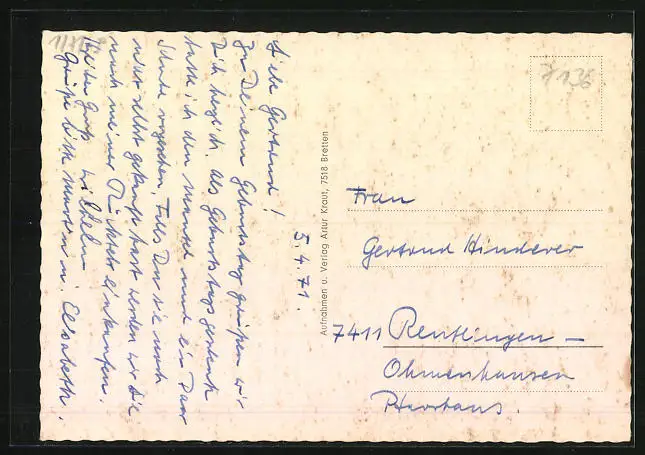 5.4.71.
Liebe Gertrud!
Zu Deinem Geburtstag grüßen wir
Dich herzlich. Als Geburtstagsgeschenk
hatte ich den Mantel und ein Paar
Schuhe vorgesehen, Falls Du sie noch
nicht selbst gekauft hast werden wir die
nach meiner Rückkehr einkaufen.
Herzl. Grüße Wilhelm
Grüße bitte
Elisabeth.
Aufnahmen u. Verlag Artur Kraut, 7518 Bretten
Frau
Gertrud Hinderer
7411 Reutlingen -
Ohmenhausen
Pfarrhaus.
7136